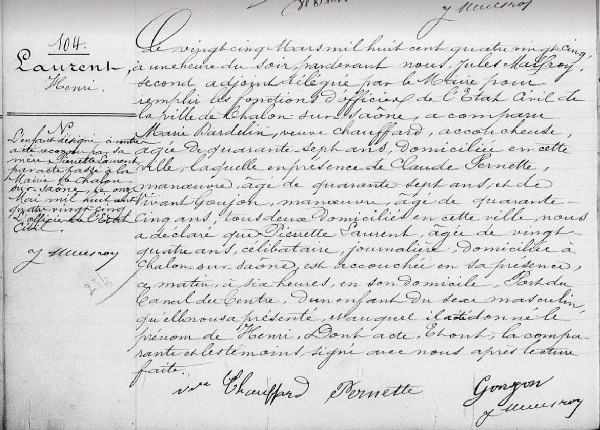 104.
Laurent
Henri.
No
L'enfant désigné ci-contre
a été reconnu par sa
mère Pierrette Laurent,
par acte passé à la
Mairie de Chalon-
sur-Saône, le onze
Mai mil huit cent
quatre vingt cinq
L'officier de l'Etat
Civil.
Le vingt cinq Mars mil huit cent quatre vingt cinq,
à une heure du soir, pardevant nous, Jules
second adjoint délégué par le Maire pour
remplir les fonctions d'officier de l'Etat Civil de
la ville de Chalon sur Saône, a comparu
Marie Dardelin, veuve Chauffard, accoucheuse,
âgée de quarante sept ans, domiciliée en cette
ville, laquelle en présence de Claude Pernette,
manœuvre, âgé de quarante sept ans, et de
Vivant Goujon, manœuvre, âgé de quarante-
cinq ans, tous deux domiciliés en cette ville, nous
a déclaré que Pierrette Laurent, âgée de vingt-
quatre ans, célibataire, journalière, domiciliée à
Chalon-sur-Saône, est accouchée en sa présence,
ce matin, à six heures, en son domicile, Port du
Canal du Centre, d'un enfant du sexe masculin,
qu'elle nous a présenté, et auquel il a été donné le
prénom de Henri. Dont acte. Et ont, la compa-
rante et les témoins, signé avec nous après lecture
faite.
vve Chauffard Pernette Gonjon